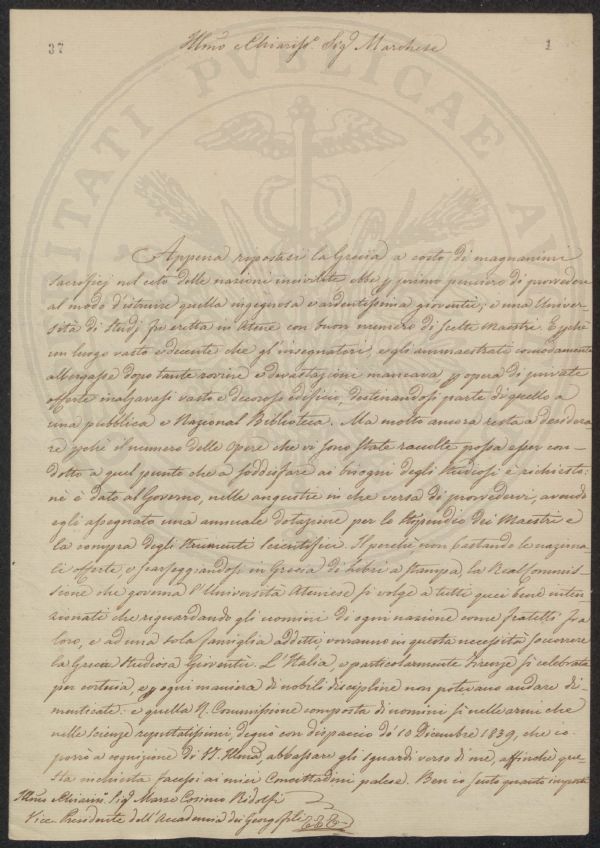 37
1
Illmo e Chiariss.o Sig.r Marchese
Appena ripostasi la Grecia a costo di magnanimi
sacrifizj nel ceto delle nazioni incivilite ebbe p primo pensiero di provvedere
al modo d'istruire quella ingegnosa e ardentissima gioventù; e una Univer-
sità di Studj fu eretta in Atene con buon numero di scelti Maestri. E pchè
un luogo vasto e decente che gl'insegnatori, e gli ammaestrati comodamente
albergasse dopo tante rovine e devastazioni mancava, p opera di private
offerte inalzavasi vasto e decoroso edifizio, destinandosi parte di quello a
una pubblica e Nazional Biblioteca. Ma molto ancora resta a desidera-
re pchè il numero delle Opere che vi sono state raccolte possa esser con-
dotto a quel punto che a soddisfare ai bisogni degli Studiosi è richiesto:
nè è dato al Governo, nelle angustie in che versa di provvedervi, avendo
egli assegnato una annuale dotazione per lo stipendio dei Maestri e
la compra degli Strumenti Scientifici. Il perchè non bastando le naziona-
li offerte, e scarseggiandosi in Grecia di Libri a stampa, la Real Commis-
sione che governa l'Università Ateniese si volge a tutti quei bene inten-
zionati che riguardando gli uomini di ogni nazione come fratelli fra
loro, e ad una sola famiglia addetti, vorranno in questa necessità soccorrere
la Greca Studiosa Gioventù. L'Italia, e particolarmente Firenze sì celebrata
per cortesia, e p ogni maniera di nobili discipline non potevano andare di-
menticate: e quella R. Commissione composta di uomini sì nelle armi che
nelle scienze reputatissimi, degnò con dispaccio de' 10 Dicembre 1839, che io
porrò a cognizione di VS. Illma, abbassare gli sguardi verso di me, affinchè que-
sta richiesta facessi ai miei Concittadini palese. Ben io sento quanto importi
Illmo e Chiarmo Sig Marse Cosimo Ridolfi
Vice-Presidente dell'Accademia dei Georgofili